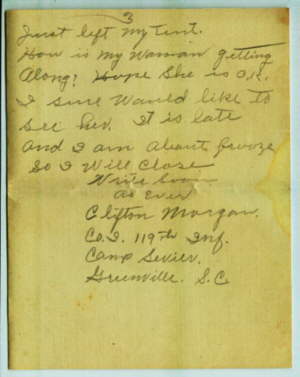 3
Just left my tent.
How is my Woman getting
Along? Hope She is O.K.
I sure Would like to
See her. It is late
And I am About froze
So I Will Close
Write Soon
As Ever
Clifton Morgan.
Co. I. 119th Inf.
Camp Sevier.
Greenville. S.C.